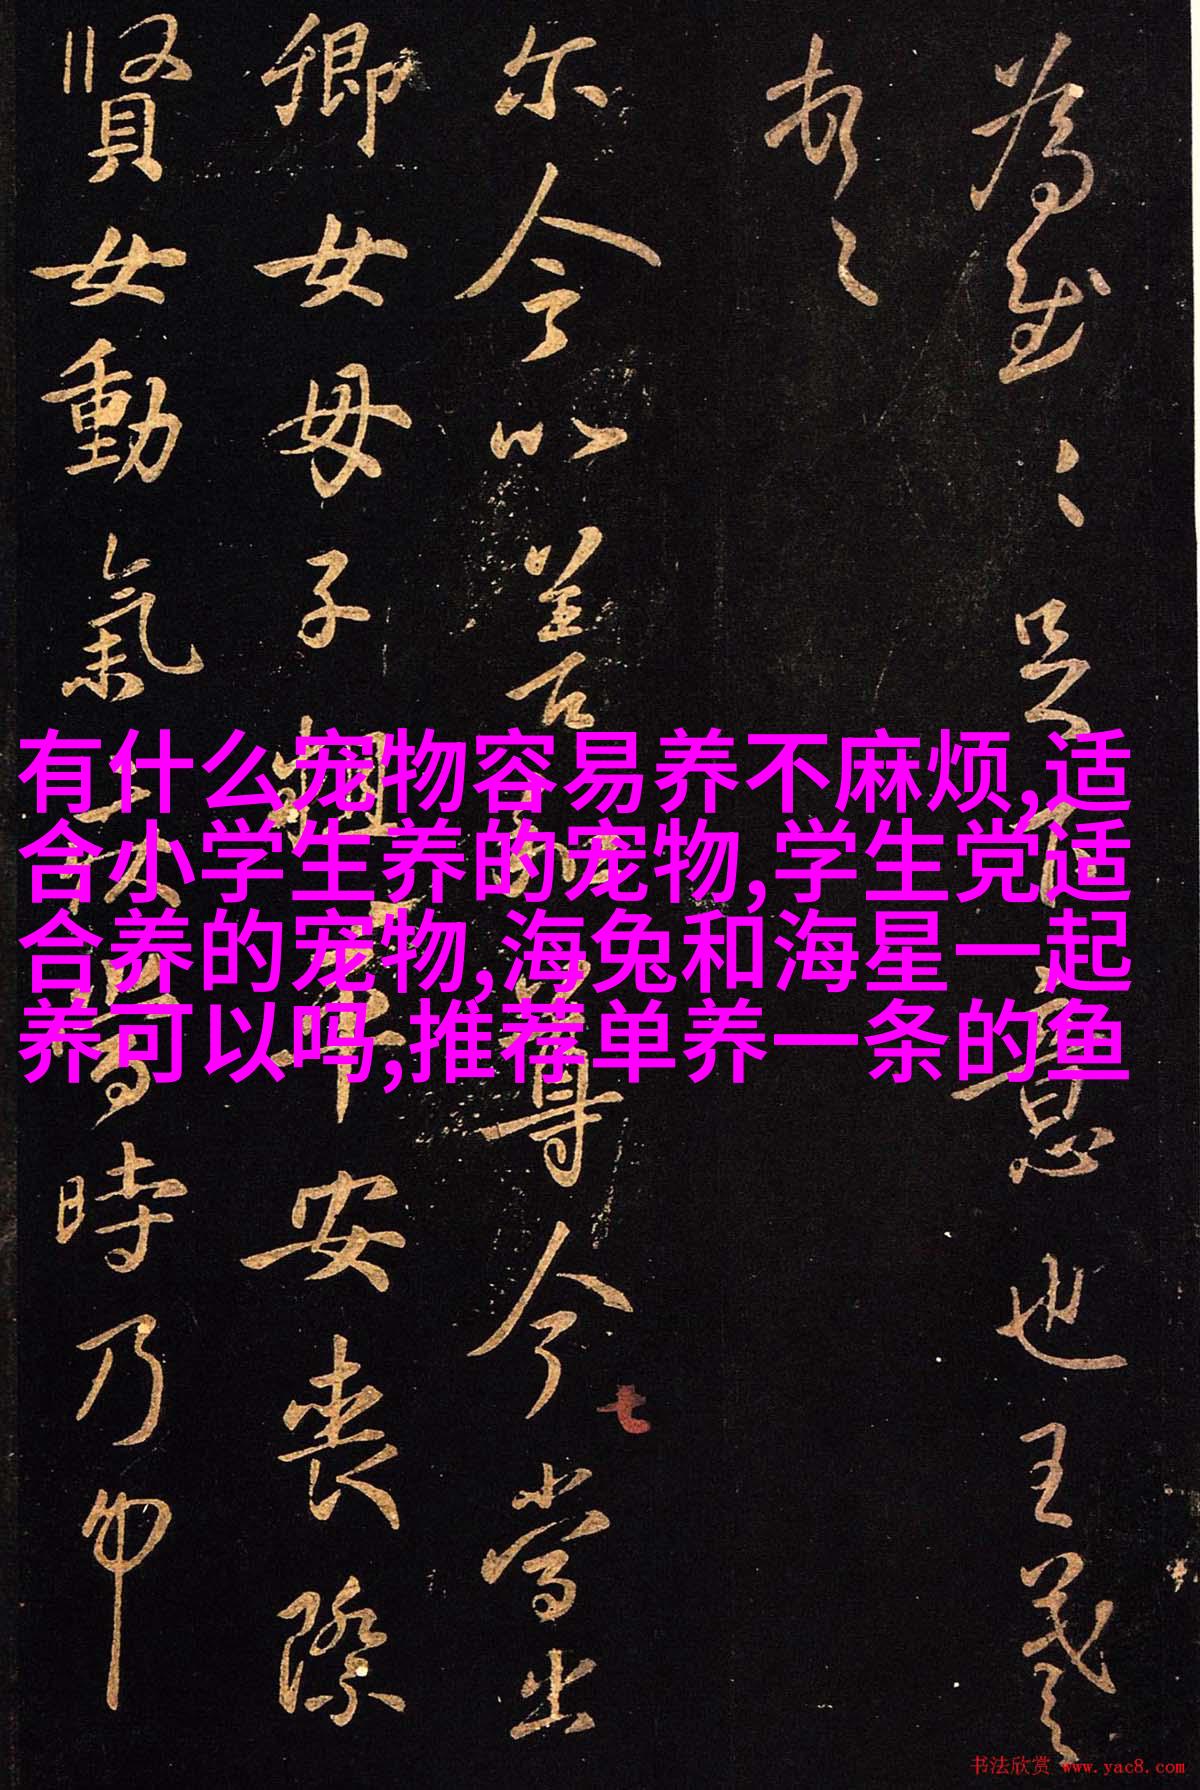 有什么宠物容易养不麻烦,适
合小学生养的宠物,学生党适
合养的宠物,海兔和海星一起
养可以吗,推荐单养一条的鱼
足意也王羲
尔今以尊今當出
卿女母子安喪際
賢女動氣時乃
书法欣赏 www.yac8.com